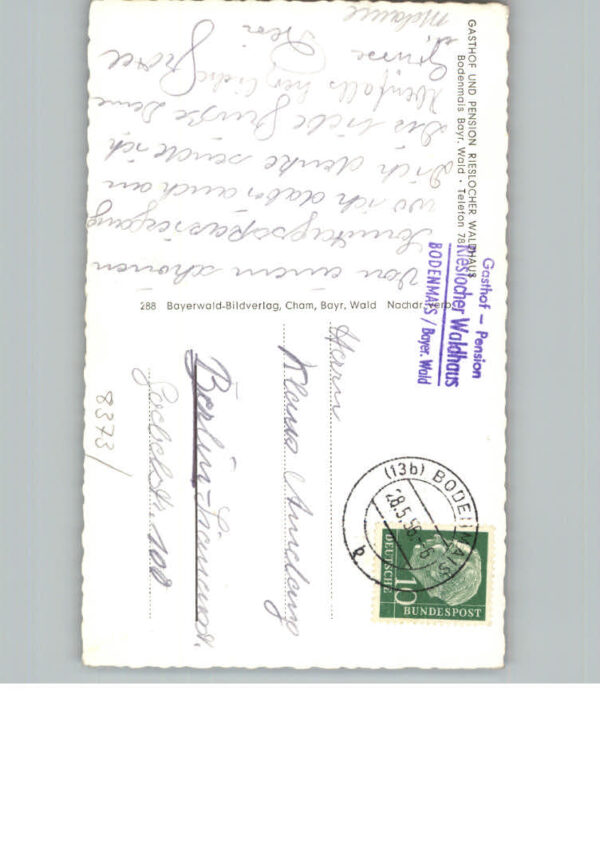 GASTHOF UND PENSION RIESLOCHER WALDHAUS
Bodenmais Bayr. Wald · Telefon 78
Von einem schönen
Sonntagsspaziergang
wo ich dabei auch an
Dich denke sende ich
Dir liebe Grüße Deine
Ebenfalls herzliche
Grüsse
Melanie
288 Bayerwald-Bildverlag, Cham, Bayr. Wald Nachdr. verb.
Gasthof – Pension
Rieslocher Waldhaus
BODENMAIS / Bayer. Wald
(13b) BODENMAIS
28.5.58.-6
b
10
DEUTSCHE
BUNDESPOST
Herrn
Klaus
Berlin-
108
8373/